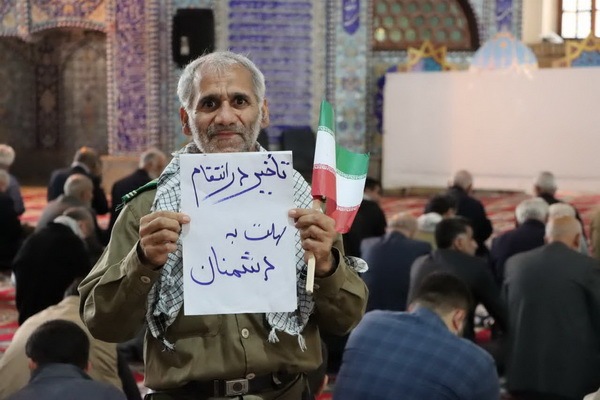 تأخیر در انتقام
مهلت به
دشمنان